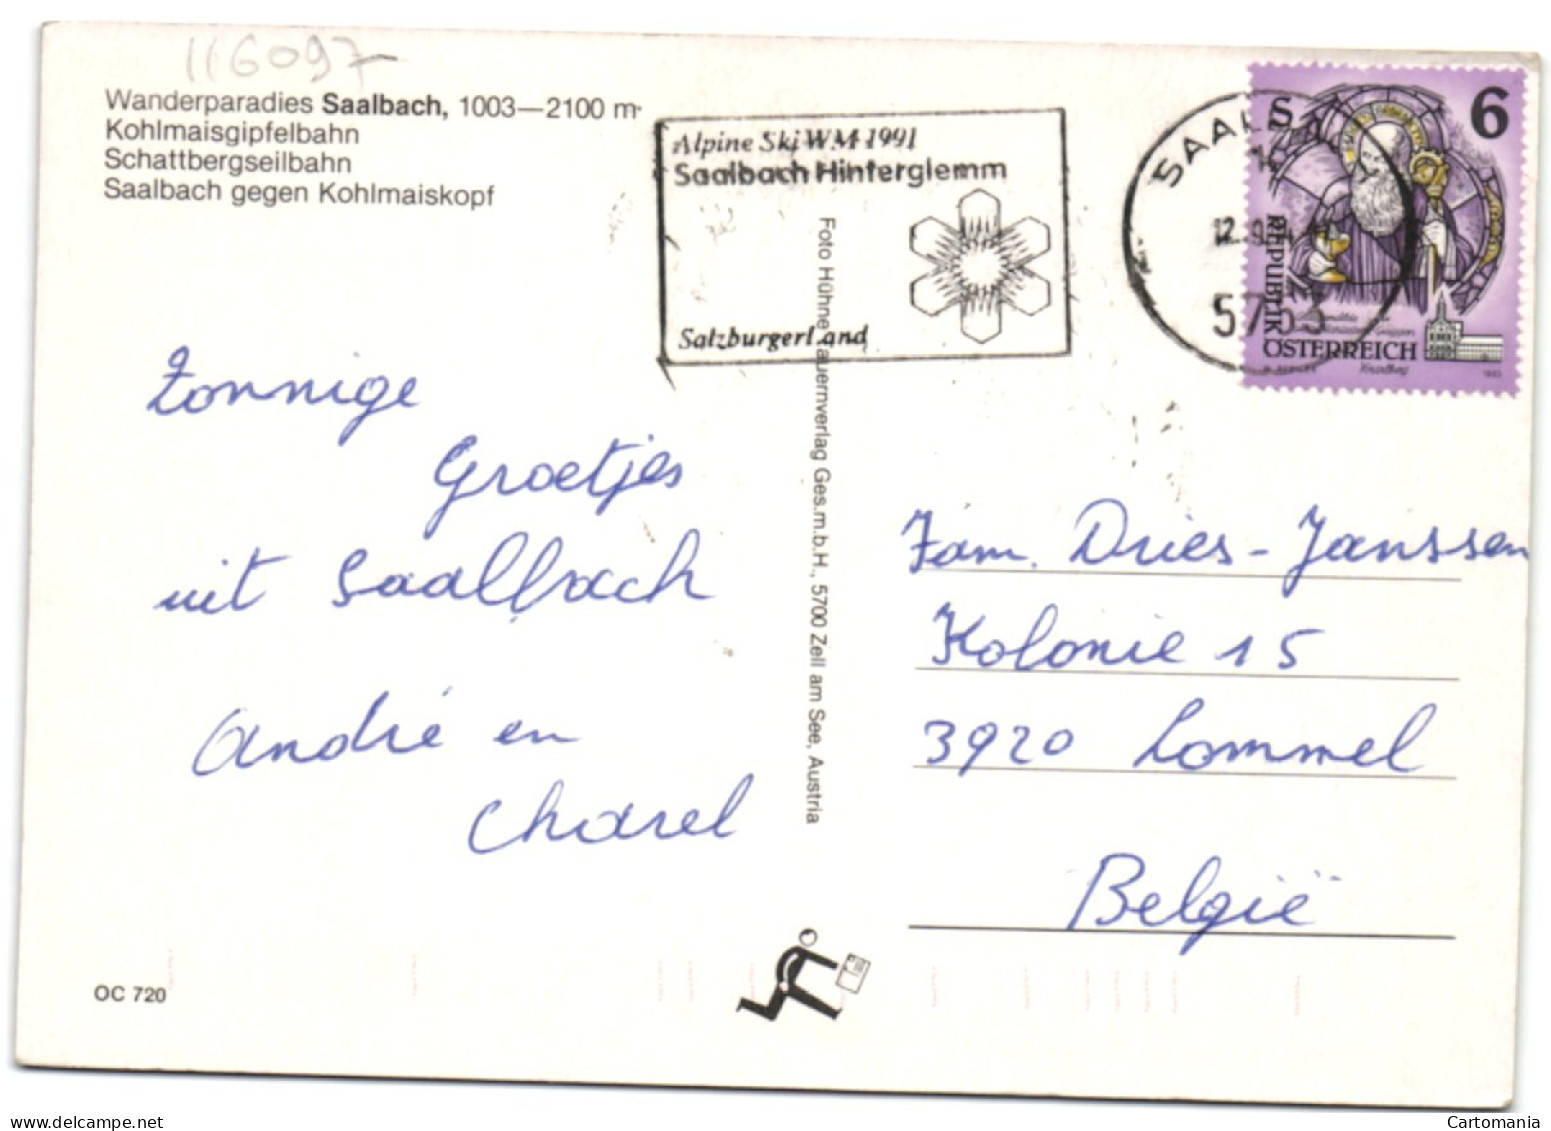 116097
Wanderparadies Saalbach, 1003—2100 m
Kohlmaisgipfelbahn
Schattbergseilbahn
Saalbach gegen Kohlmaiskopf
Alpine Ski WM 1991
Saalbach Hinterglemm
SalzburgerLand
5753
6
REPUBLIK
ÖSTERREICH
Foto Hühne Tauernverlag Ges.m.b.H., 5700 Zell am See, Austria
Zonnige
Groetjes
uit Saalbach
André en
Charel
Fam. Dries-Janssen
Kolonie 15
3920 Lommel
België
OC 720
delcampe.net
Cartomania